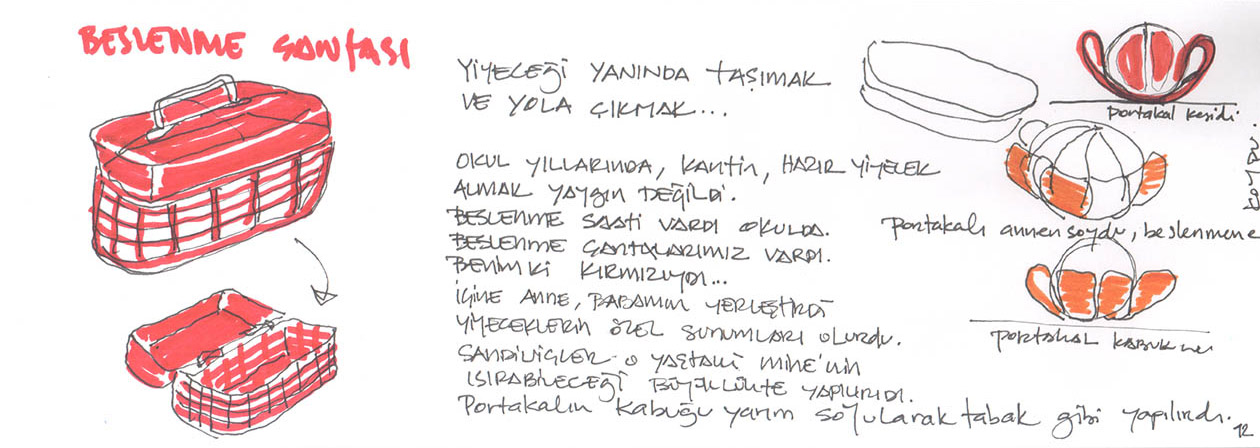 BESLENME ÇANTASI
YİYECEĞİ YANINDA TAŞIMAK
VE YOLA ÇIKMAK...
OKUL YILLARINDA, KANTİN, HAZIR YİYECEK
ALMAK YAYGIN DEĞİLDİ.
BESLENME SAATİ VARDI OKULDA.
BESLENME ÇANTALARIMIZ VARDI.
BENİMKİ KIRMIZIYDI...
İÇİNE ANNE, BABAMIN YERLEŞTİRDİĞİ
YİYECEKLERİN ÖZEL SUNUMLARI OLURDU.
SANDİVİÇLER O YAŞTAKİ MİNE'NİN
ISIRABİLECEĞİ BÜYÜKLÜKTE YAPILIRDI.
Portakalın kabuğu yarım soyularak tabak gibi yapılırdı.
portakal kesidi
Portakalı annen soydu, beslenmene
portakal kabuk
12